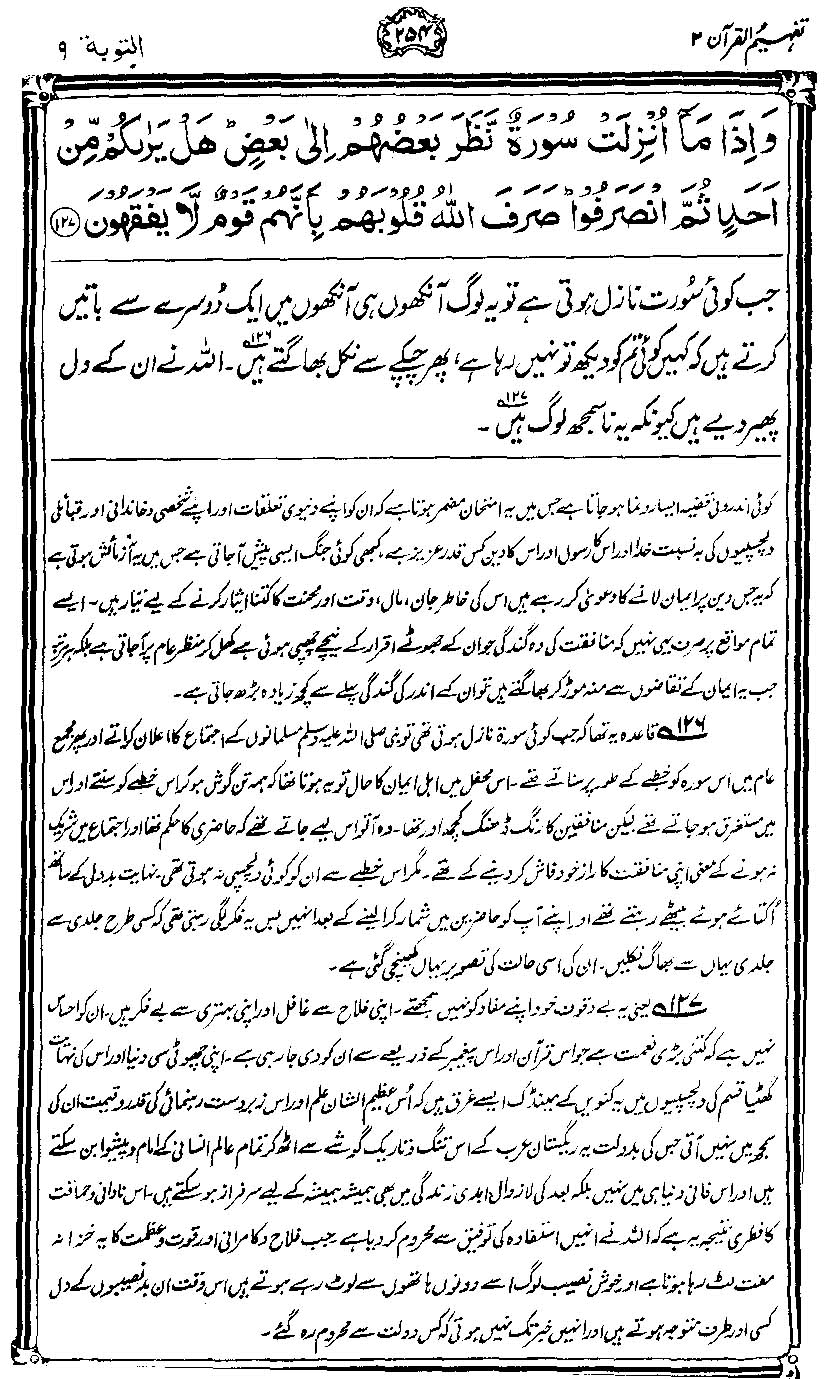 تفہیم القرآن ۲
۲۵۴
التوبة ۹
وَاِذَا مَآ اُنْزِلَتْ سُوْرَةٌ نَّظَرَ بَعْضُهُمْ اِلٰى بَعْضٍ ؕ هَلْ يَرٰىكُمْ مِّنْ
اَحَدٍ ثُمَّ انْصَرَفُوْا ؕ صَرَفَ اللّٰهُ قُلُوْبَهُمْ بِاَنَّهُمْ قَوْمٌ لَّا يَفْقَهُوْنَ ﴿۱۲۷﴾
جب کوئی سُورت نازل ہوتی ہے تو یہ لوگ آنکھوں ہی آنکھوں میں ایک دُوسرے سے باتیں
کرتے ہیں کہ کہیں کوئی تم کو دیکھ تو نہیں رہا ہے، پھر چپکے سے نکل بھاگتے ہیں۱۲۶۔ اللہ نے ان کے دل
پھیر دیے ہیں کیونکہ یہ ناسمجھ لوگ ہیں۱۲۷۔
کوئی اندرونی قضیہ ایسا رونما ہو جاتا ہے جس میں یہ امتحان مضمر ہوتا ہے کہ ان کو اپنے دنیوی تعلقات اور اپنے شخصی و خاندانی اور قبائلی
دلچسپیوں کی بہ نسبت خدا اور اس کا رسول اور اس کا دین کس قدر عزیز ہے، کبھی کوئی جنگ ایسی پیش آجاتی ہے جس میں یہ آزمائش ہوتی ہے
کہ یہ جس دین پر ایمان لانے کا دعویٰ کر رہے ہیں اس کی خاطر جان، مال، وقت اور محنت کا کتنا ایثار کرنے کے لیے تیار ہیں۔ ایسے
تمام مواقع پر صرف یہی نہیں کہ منافقت کی وہ گندگی جو ان کے جھوٹے اقرار کے نیچے چھپی ہوئی ہے کھل کر منظر عام پر آجاتی ہے بلکہ ہر مرتبہ
جب یہ ایمان کے تقاضوں سے منہ موڑ کر بھاگتے ہیں تو ان کے اندر کی گندگی پہلے سے کچھ زیادہ بڑھ جاتی ہے۔
۱۲۶ قاعدہ یہ تھا کہ جب کوئی سورۃ نازل ہوتی تھی تو نبی صلی اللہ علیہ وسلم مسلمانوں کے اجتماع کا اعلان کراتے اور پھر مجمع
عام میں اس سورہ کو خطبے کے طور پر سناتے تھے۔ اس محفل میں اہل ایمان کا حال تو یہ ہوتا تھا کہ ہمہ تن گوش ہو کر اس خطبے کو سنتے اور اس
میں مستغرق ہو جاتے تھے لیکن منافقین کا رنگ ڈھنگ کچھ اور تھا۔ وہ آتو اس لیے جاتے تھے کہ حاضری کا حکم تھا اور اجتماع میں شریک
نہ ہونے کے معنی اپنی منافقت کا راز خود فاش کر دینے کے تھے۔ مگر اس خطبے سے ان کو کوئی دلچسپی نہ ہوتی تھی۔ نہایت بددلی کے ساتھ
اُکتائے ہوئے بیٹھے رہتے تھے اور اپنے آپ کو حاضرین میں شمار کرا لینے کے بعد انہیں بس یہ فکر لگی رہتی تھی کہ کسی طرح جلدی سے
جلدی یہاں سے بھاگ نکلیں۔ ان کی اسی حالت کی تصویر یہاں کھینچی گئی ہے۔
۱۲۷ یعنی یہ بے وقوف خود اپنے مفاد کو نہیں سمجھتے۔ اپنی فلاح سے غافل اور اپنی بہتری سے بے فکر ہیں۔ ان کو احساس
نہیں ہے کہ کتنی بڑی نعمت ہے جو اس قرآن اور اس پیغمبر کے ذریعے سے ان کو دی جا رہی ہے۔ اپنی چھوٹی سی دنیا اور اس کی نہایت
گھٹیا قسم کی دلچسپیوں میں یہ کنویں کے مینڈک ایسے غرق ہیں کہ اُس عظیم الشان علم اور اس زبردست رہنمائی کی قدر و قیمت ان کی
سمجھ میں نہیں آتی جس کی بدولت یہ ریگستان عرب کے اس تنگ و تاریک گوشے سے اٹھ کر تمام عالم انسانی کے امام و پیشوا بن سکتے
ہیں اور اس فانی دنیا ہی میں نہیں بلکہ بعد کی لازوال ابدی زندگی میں بھی ہمیشہ ہمیشہ کے لیے سرفراز ہو سکتے ہیں۔ اس نادانی و حماقت
کا فطری نتیجہ یہ ہے کہ اللہ نے انہیں استفادہ کی توفیق سے محروم کر دیا ہے۔ جب فلاح و کامرانی اور قوت و عظمت کا یہ خزانہ
مفت لٹ رہا ہوتا ہے اور خوش نصیب لوگ اسے دونوں ہاتھوں سے لوٹ رہے ہوتے ہیں اس وقت ان بد نصیبوں کے دل
کسی اور طرف متوجہ ہوتے ہیں اور انہیں خبر تک نہیں ہوتی کہ کس دولت سے محروم رہ گئے۔